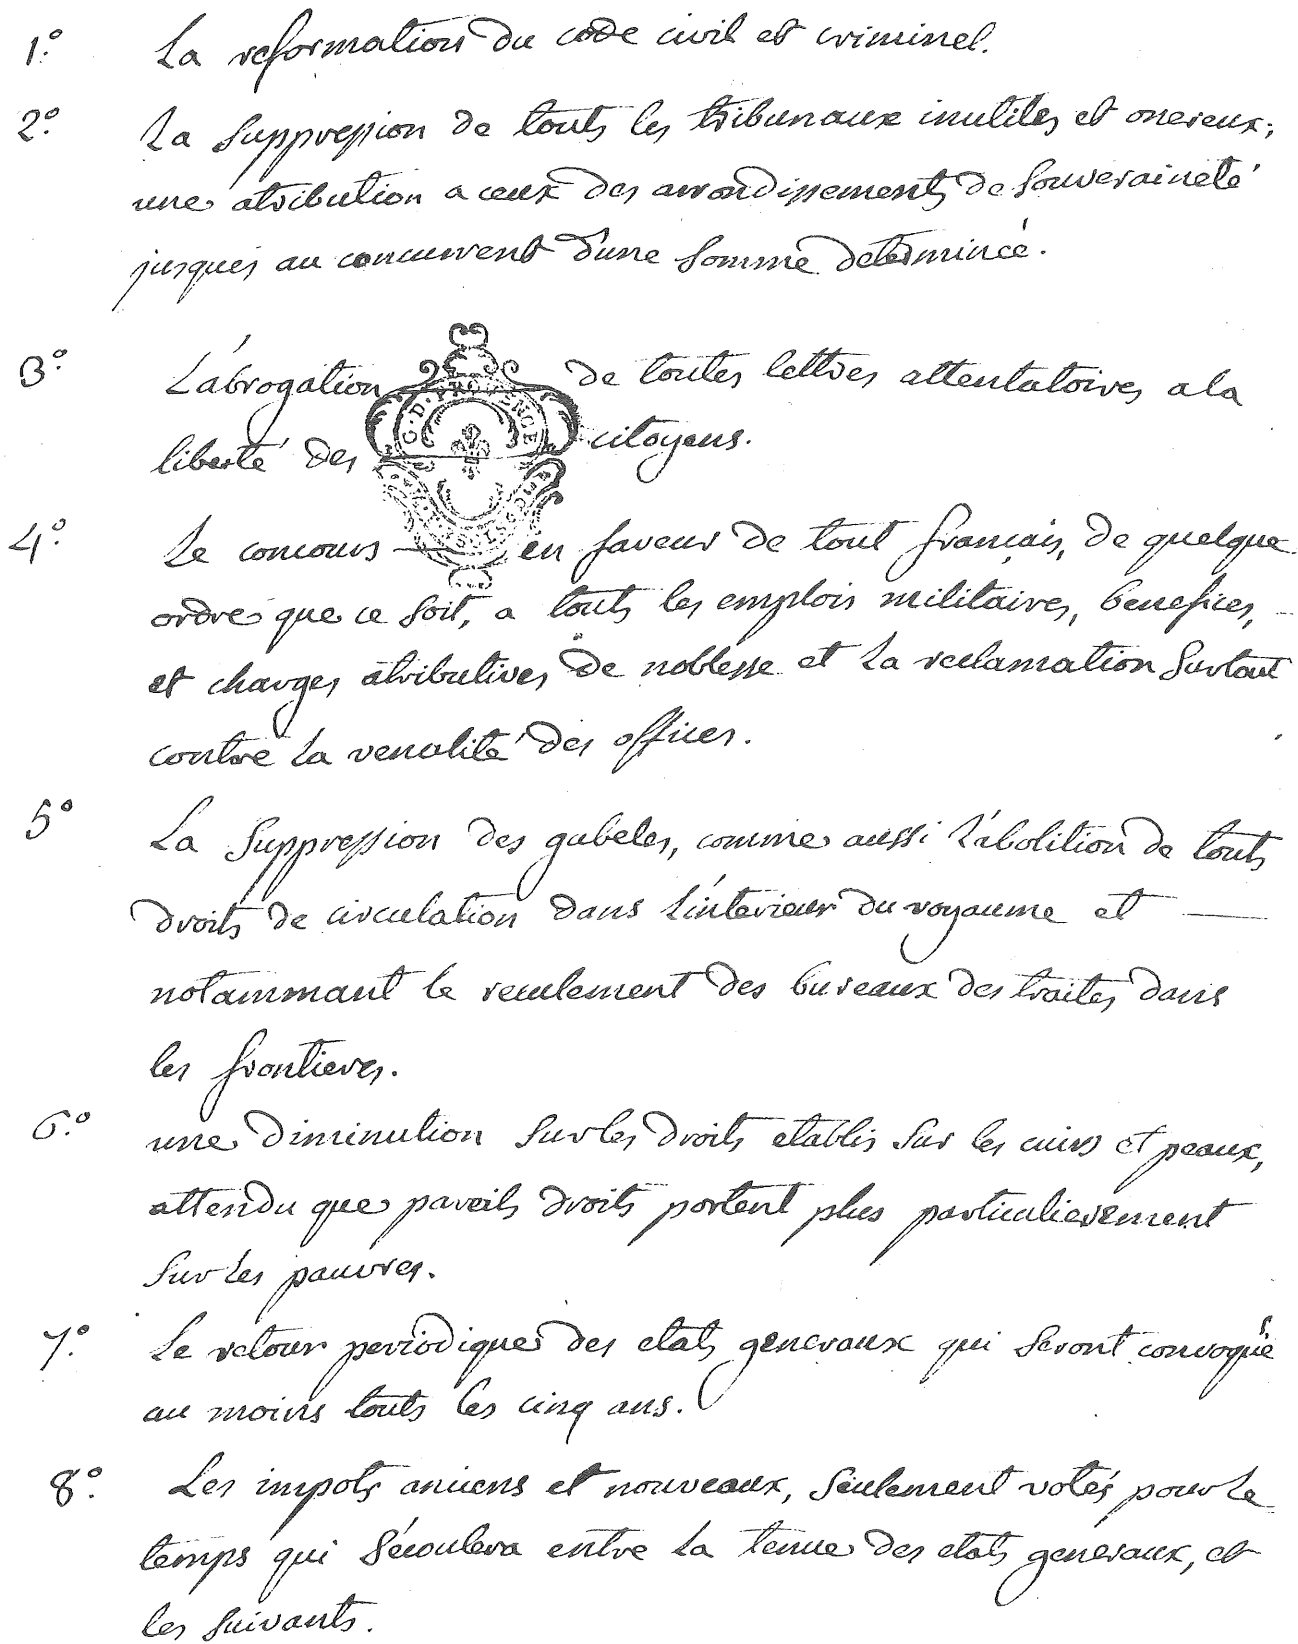 1.° La reformation du code civil et criminel.
2.° La suppression de touts les tribunaux inutiles et onereux;
une atribution a ceux des arrondissements de souveraineté
jusques au concurrent d'une somme determinée.
3.° L'abrogation de toutes lettres attentatoires a la
liberté des citoyens.
G. D. PROVENCE
4.° Le concours en faveur de tout français, de quelque
ordre que ce soit, a touts les emplois militaires, benefices,
et charges atributives de noblesse et la reclamation surtout
contre la venalité des offices.
5° La suppression des gabeles, comme aussi l'abolition de touts
droits de circulation dans l'interieur du royaume et
notammant le reculement des bureaux des traites dans
les frontieres.
6.° une diminution sur les droits etablis sur les cuirs et peaux,
attendu que pareils droits portent plus particulierement
sur les pauvres.
7.° Le retour periodique des etats generaux qui seront convoqués
au moins touts les cinq ans.
8.° Les impots anciens et nouveaux, seulement votés pour le
temps qui s'écoulera entre la tenue des etats generaux, et
les suivants.